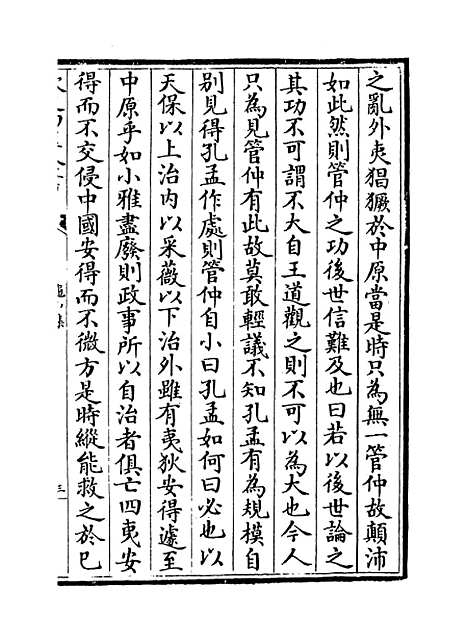 之亂外夷猖獗於中原當是時只為無一管仲故顛沛
如此然則管仲之功後世信難及也曰若以後世論之
其功不可謂不大自王道觀之則不可以為大也今人
只為見管仲有此故莫敢輕議不知孔孟有為規模自
別見得孔孟作處則管仲自小曰孔孟如何曰必也以
天保以上治内以采薇以下治外雖有夷狄安得遽至
中原乎如小雅盡廢則政事所以自治者俱亡四夷安
得而不交侵中國安得而不微方是時縱能救之於已